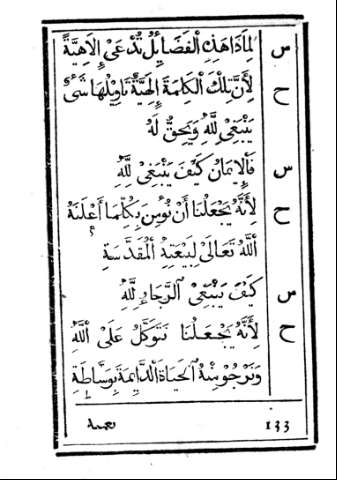 س لِمَاذَا هَذِهِ ٱلْفَضَائِلُ تُدْعَىٰ إِلَاهِيَّةً
ج لِأَنَّ تِلْكَ ٱلْكَلِمَةَ إِلَهِيَّةٌ تَاوِيلُهَا شَىْءٌ
يَنْبَغِىْ لِلّٰهِ وَيَحِقُّ لَهُ
س فَٱلْإِيمَانُ كَيْفَ يَنْبَغِىْ لِلّٰهِ
ج لِأَنَّهُ يَجْعَلُنَا أَنْ نُؤْمِنَ بِكُلِّمَا أَعْلَنَهُ
ٱللّٰهُ تَعَالَىٰ لِبِيعَتِهِ ٱلْمُقَدَّسَةِ
س كَيْفَ يَنْبَغِىْ ٱلرَّجَاءُ لِلّٰهِ
ج لِأَنَّهُ يَجْعَلُنَا نَتَوَكَّلُ عَلَىٰ ٱللّٰهِ
وَنَرْجُوْ مِنْهُ ٱلْحَيَاةَ ٱلدَّائِمَةَ بِوَسَّاطَةِ
١٣٣ نعمته